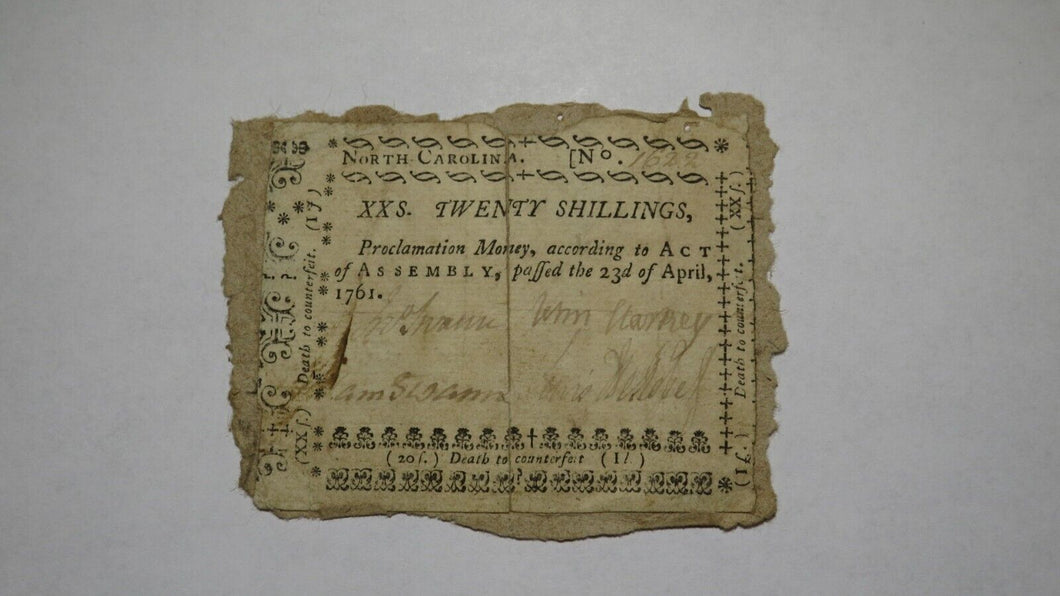 North-Carolina. [No. 1622
XXS. TWENTY SHILLINGS,
Proclamation Money, according to ACT
of ASSEMBLY, paſſed the 23d of April,
1761.
Death to counterfeit. (1 ſ)
(XX ſ.)
(XX ſ.)
Death to counterfeit.
(1 ſ.)
(20 ſ.) Death to counterfeit (1 l.)